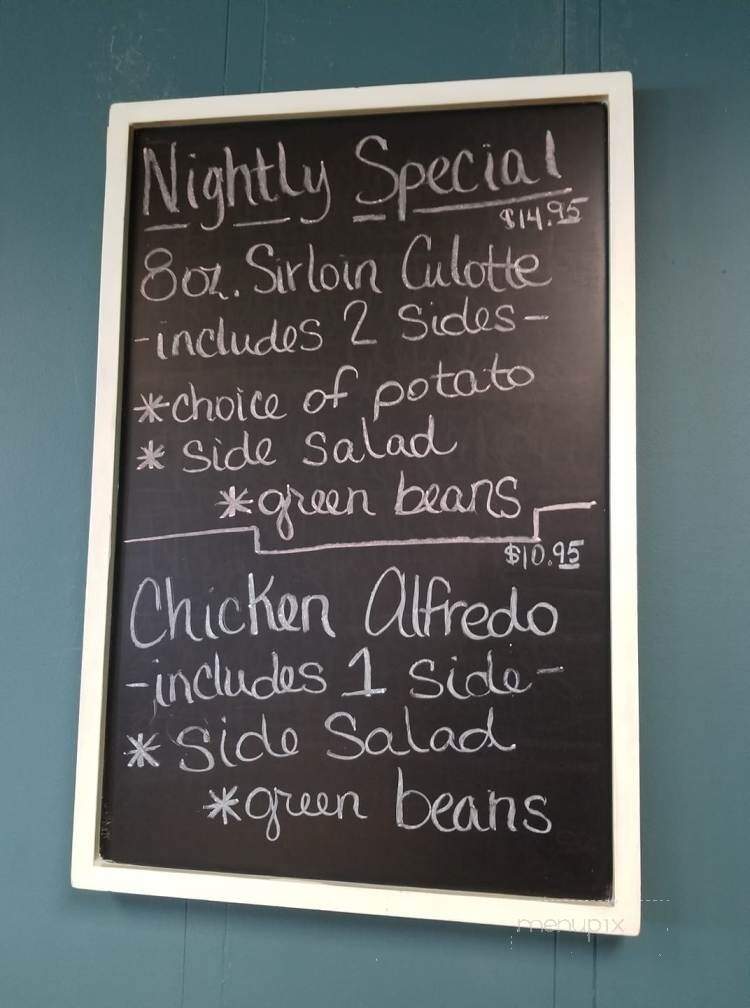 Nightly Special
$14.95
8oz. Sirloin Culotte
-includes 2 Sides-
*choice of potato
* side salad
*green beans
$10.95
Chicken Alfredo
-includes 1 side-
* side Salad
*green beans
menupix